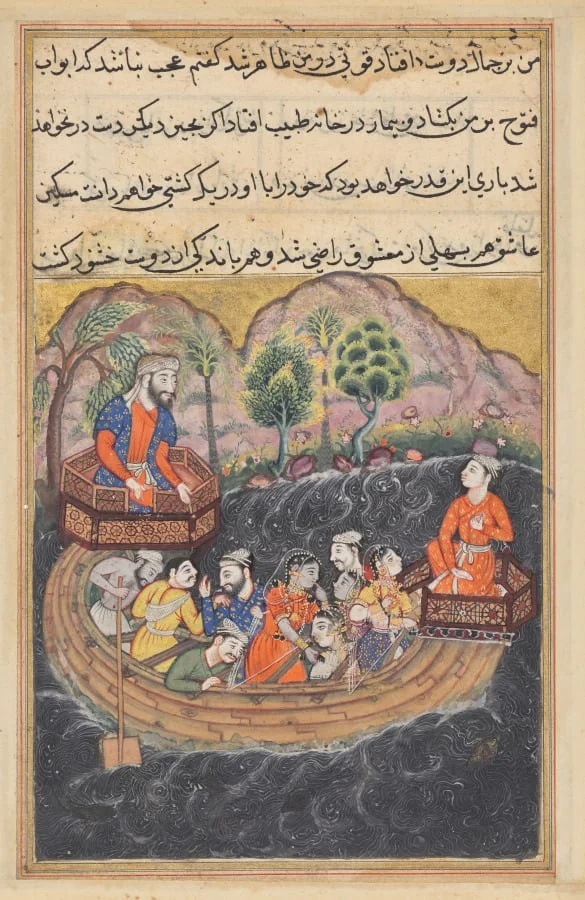 من بر جمال دوست افتاد قوتی در من ظاهر شد گفتم عجب نباشد که ابواب
فتوح بر من بگشاد و بیمار در خانه طبیب افتاد اگر بچین دیگر دست در نخواهد
شد باری این قدر خواهد بود که خود را با او در یک کشتی خواهم دانست مسکین
عاشق هم بسهلی از معشوق راضی شد و هم باندکی از دوست خشنود گشت